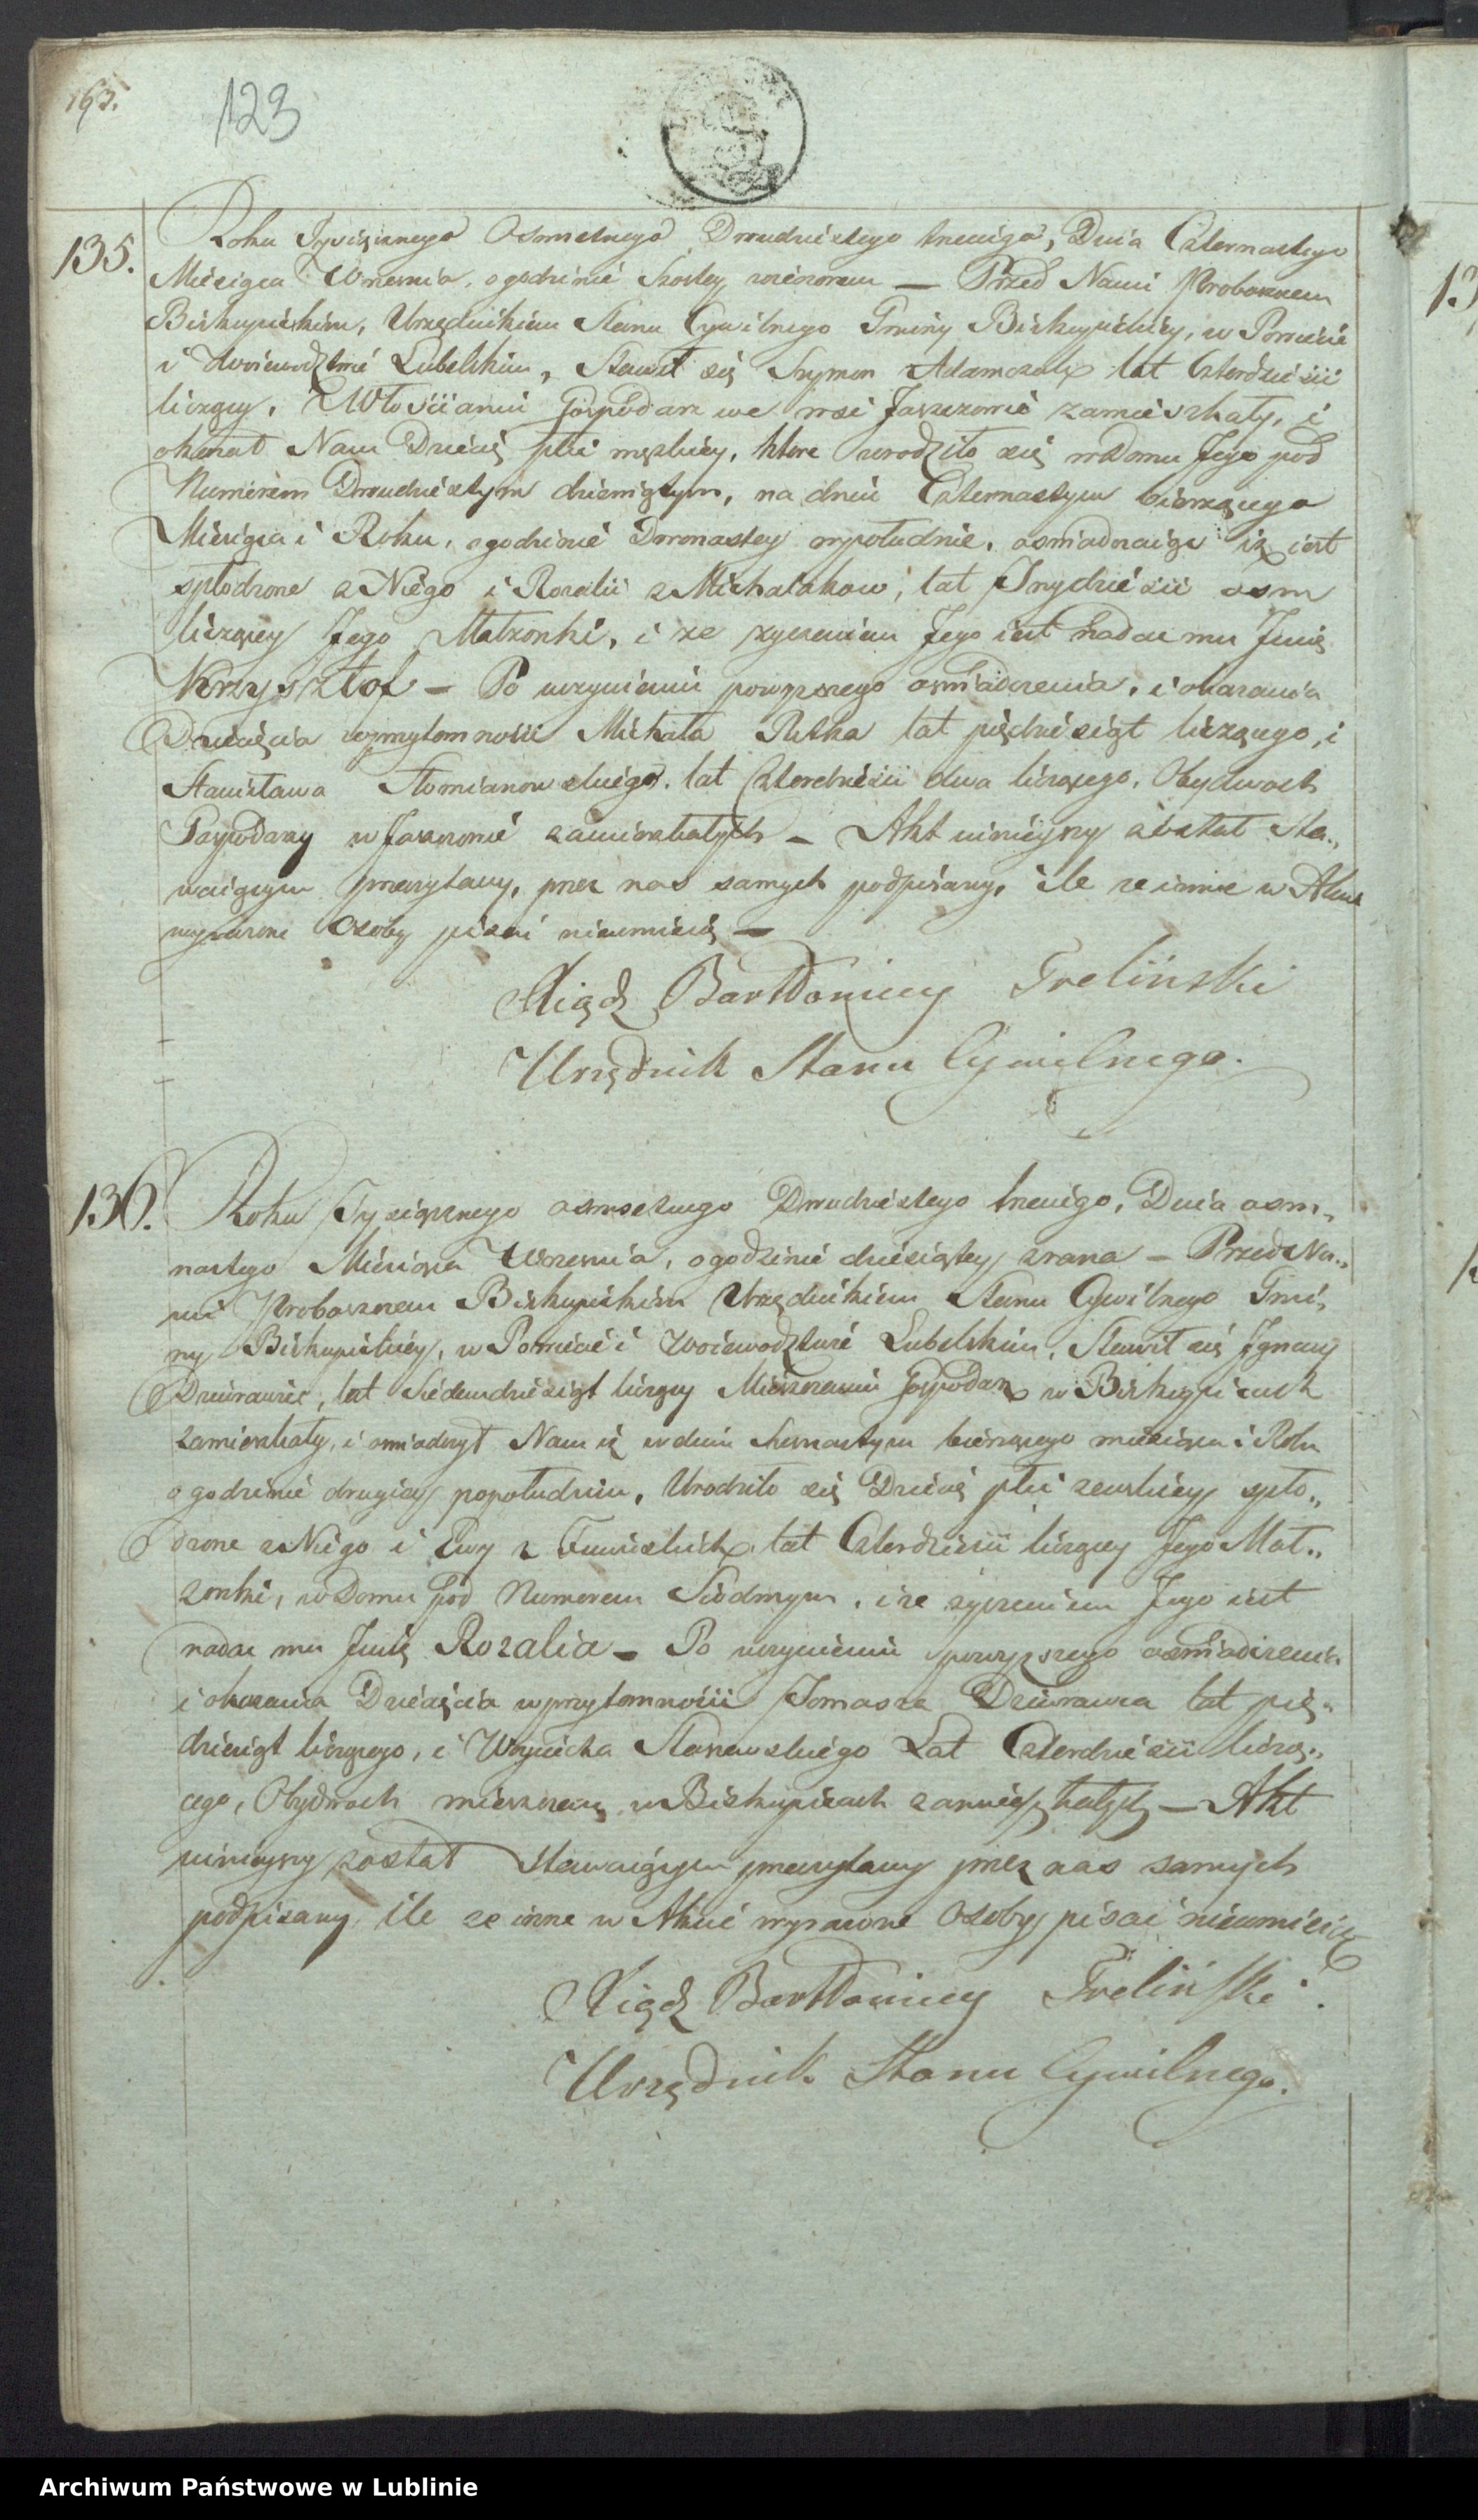 163.
123
135.
Roku Tysiącznego Osmsetnego Dwudziestego trzeciego, Dnia Czternastego
Miesiąca Wrzesnia, o godzinie Szostey wieczorem — Przed Nami Proboszczem
Biskupickim, Urzędnikiem Stanu Cywilnego Gminy Biskupickiey, w Powiecie
i Woiewodztwie Lubelskim, Stawił się Szymon Adamczuk lat Czterdziesci
liczący, Włoscianin Gospodarz we wsi Jaszczowie zamieszkały, i
okazał Nam Dziecię płci męzkiey, ktore urodziło się w Domu Jego pod
Numerem Dwudziestym dziewiątym, na dniu Czternastym bieżącego
Miesiąca i Roku, o godzinie Dwonastey wpołudnie, oswiadczaiąc iż iest
spłodzone z Niego i Rozalii z Michalakow, lat Trzydziesci osm
liczącey Jego Małzonki, i ze zyczeniem Jego iest nadac mu Jmię
Krzysztof — Po uczynieniu powyższego oswiadczenia, i okazania
Dziecięcia w przytomnosci Michała Rutka lat pięćdziesiąt liczącego, i
Stanisława Słomianowskiego, lat Czterdziesci dwa liczącego, Obydwoch
Gospodarzy w Jaszczowie zamieszkałych — Akt ninieyszy został Sta„
waiącym przeczytany, przez nas samych podpisany, ile ze inne w Akcie
wyrazone Osoby pisać nieumieią —
Xiądz Bartłomiey Treliński
Urzędnik Stanu Cywilnego.
136.
Roku Tysiącznego osmsetnego Dwudziestego trzeciego, Dnia osm„
nastego Miesiąca Wrzesnia, o godzinie dziesiątey zrana — Przed Na„
mi Proboszczem Biskupickim Urzędnikiem Stanu Cywilnego Gmi„
ny Biskupickiey, w Powiecie i Woiewodztwie Lubelskim, Stawił się Jgnacy
Dziurawiec, lat Siedemdziesiąt liczący Mieszczanin Gospodarz w Biskupicach
zamieszkały, i oswiadczył Nam iż w dniu bieżącego miesiąca i Roku
o godzinie drugiey popołudniu, Urodziło się Dziecię płci zenskiey spło„
dzone z Niego i Ewy z lat Czterdziesci liczącey Jego Mał„
zonki, w Domu pod Numerem Siodmym, i ze zyczeniem Jego iest
nadac mu Jmię Rozalia — Po uczynieniu powyższego oswiadczenia
i okazania Dziecięcia w przytomnosci Tomasza Dziurawca lat pię„
dziesiąt liczącego, i Woyciecha Stanewskiego Lat Czterdziesci liczą„
cego, Obydwoch mieszczan w Biskupicach zamieszkałych — Akt
ninieyszy został Stawaiącym przeczytany przez nas samych
podpisany, ile ze inne w Akcie wyrazone Osoby pisać nieumieią
Xiądz Bartłomiey Treliński.
Urzędnik Stanu Cywilnego.
13
Archiwum Państwowe w Lublinie